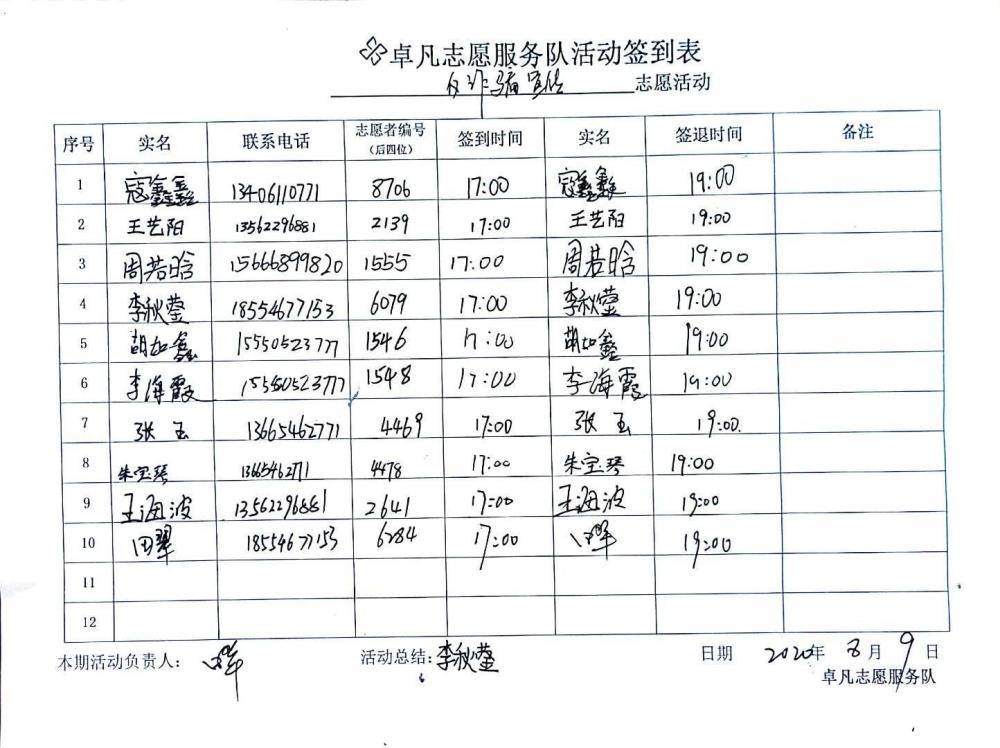 卓凡志愿服务队活动签到表
反诈骗宣传 志愿活动
序号 实名 联系电话 志愿者编号（后四位） 签到时间 实名 签退时间 备注
1 寇鑫鑫 13406110771 8706 17:00 寇鑫鑫 19:00
2 王艺阳 13562296881 2139 17:00 王艺阳 19:00
3 周若晗 15666899820 1555 17:00 周若晗 19:00
4 李秋莹 18554677153 6079 17:00 李秋莹 19:00
5 胡如鑫 15550523777 1546 17:00 胡如鑫 19:00
6 李海霞 15550523777 1548 17:00 李海霞 19:00
7 张玉 13665462771 4469 17:00 张玉 19:00.
8 朱宝琴 13665462771 4478 17:00 朱宝琴 19:00
9 王海波 13562296881 2641 17:00 王海波 19:00
10 田翠 18554677153 6284 17:00 19:00
11
12
本期活动负责人： 活动总结：李秋莹 日期 2020年8月9日
卓凡志愿服务队